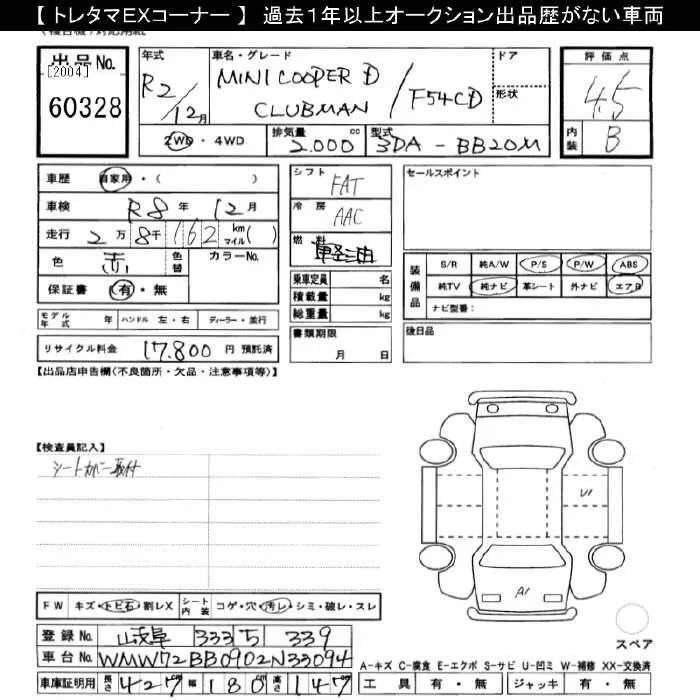 【トレタマEXコーナー】 過去1年以上オークション出品歴がない車両
出品No.
[2004]
60328
年式
R2/12月
車名・グレード
MINI COOPER D
CLUBMAN / F54CD
ドア
形状
評価点
4.5
内装 B
2WD・4WD
排気量 2.000 cc
型式 3DA-BB20M
車歴 自家用・( )
車検 R8年 12月
走行 2万 8千 162 km マイル( )
色 赤 色替 カラーNo.
保証書 有・無
シフト FAT
冷房 AAC
燃料 軽油
乗車定員 名
積載量 kg
総重量 kg
セールスポイント
装備品
S/R 純A/W P/S P/W ABS
純TV 純ナビ 革シート 外ナビ エアB
ナビ型番：
モデル年式 年 ハンドル 左・右 ディーラー・並行
書類期限
月 日
後日品
リサイクル料金 17.800 円 預託済
【出品店申告欄(不良箇所・欠品・注意事項等)】
【検査員記入】
シートカバー取付
U1
A1
FW キズ・トビ石・割レX シート内装 コゲ・穴・汚レ・シミ・破レ・スレ
スペア
登録No. 岐阜 333 5 339
車台No. WMW72BB0902N33094
A-キズ C-腐食 E-エクボ S-サビ U-凹ミ W-補修 XX-交換済
車庫証明用 長さ 427 幅 180 cm 高さ 147
工具 有・無 ジャッキ 有・無